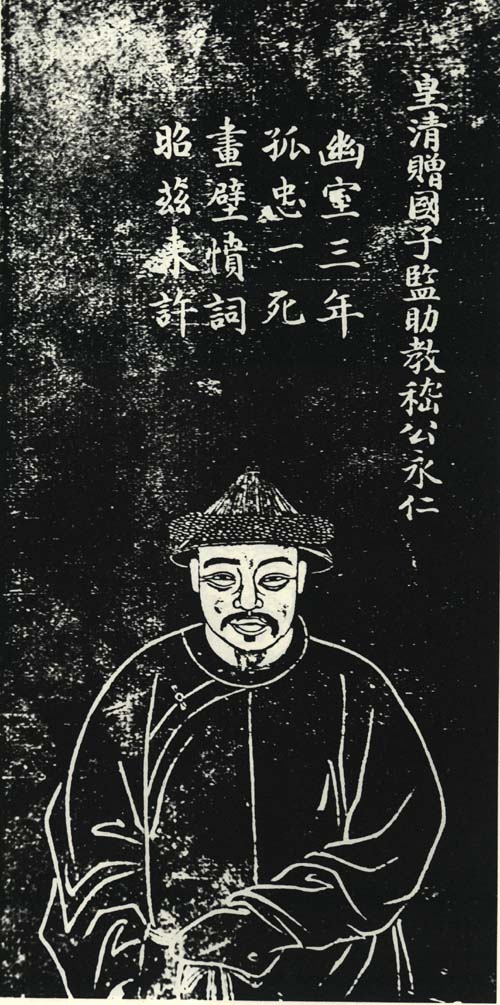 皇清贈國子監助教嵇公永仁
幽室三年
孤忠一死
畫壁憤詞
昭茲来許